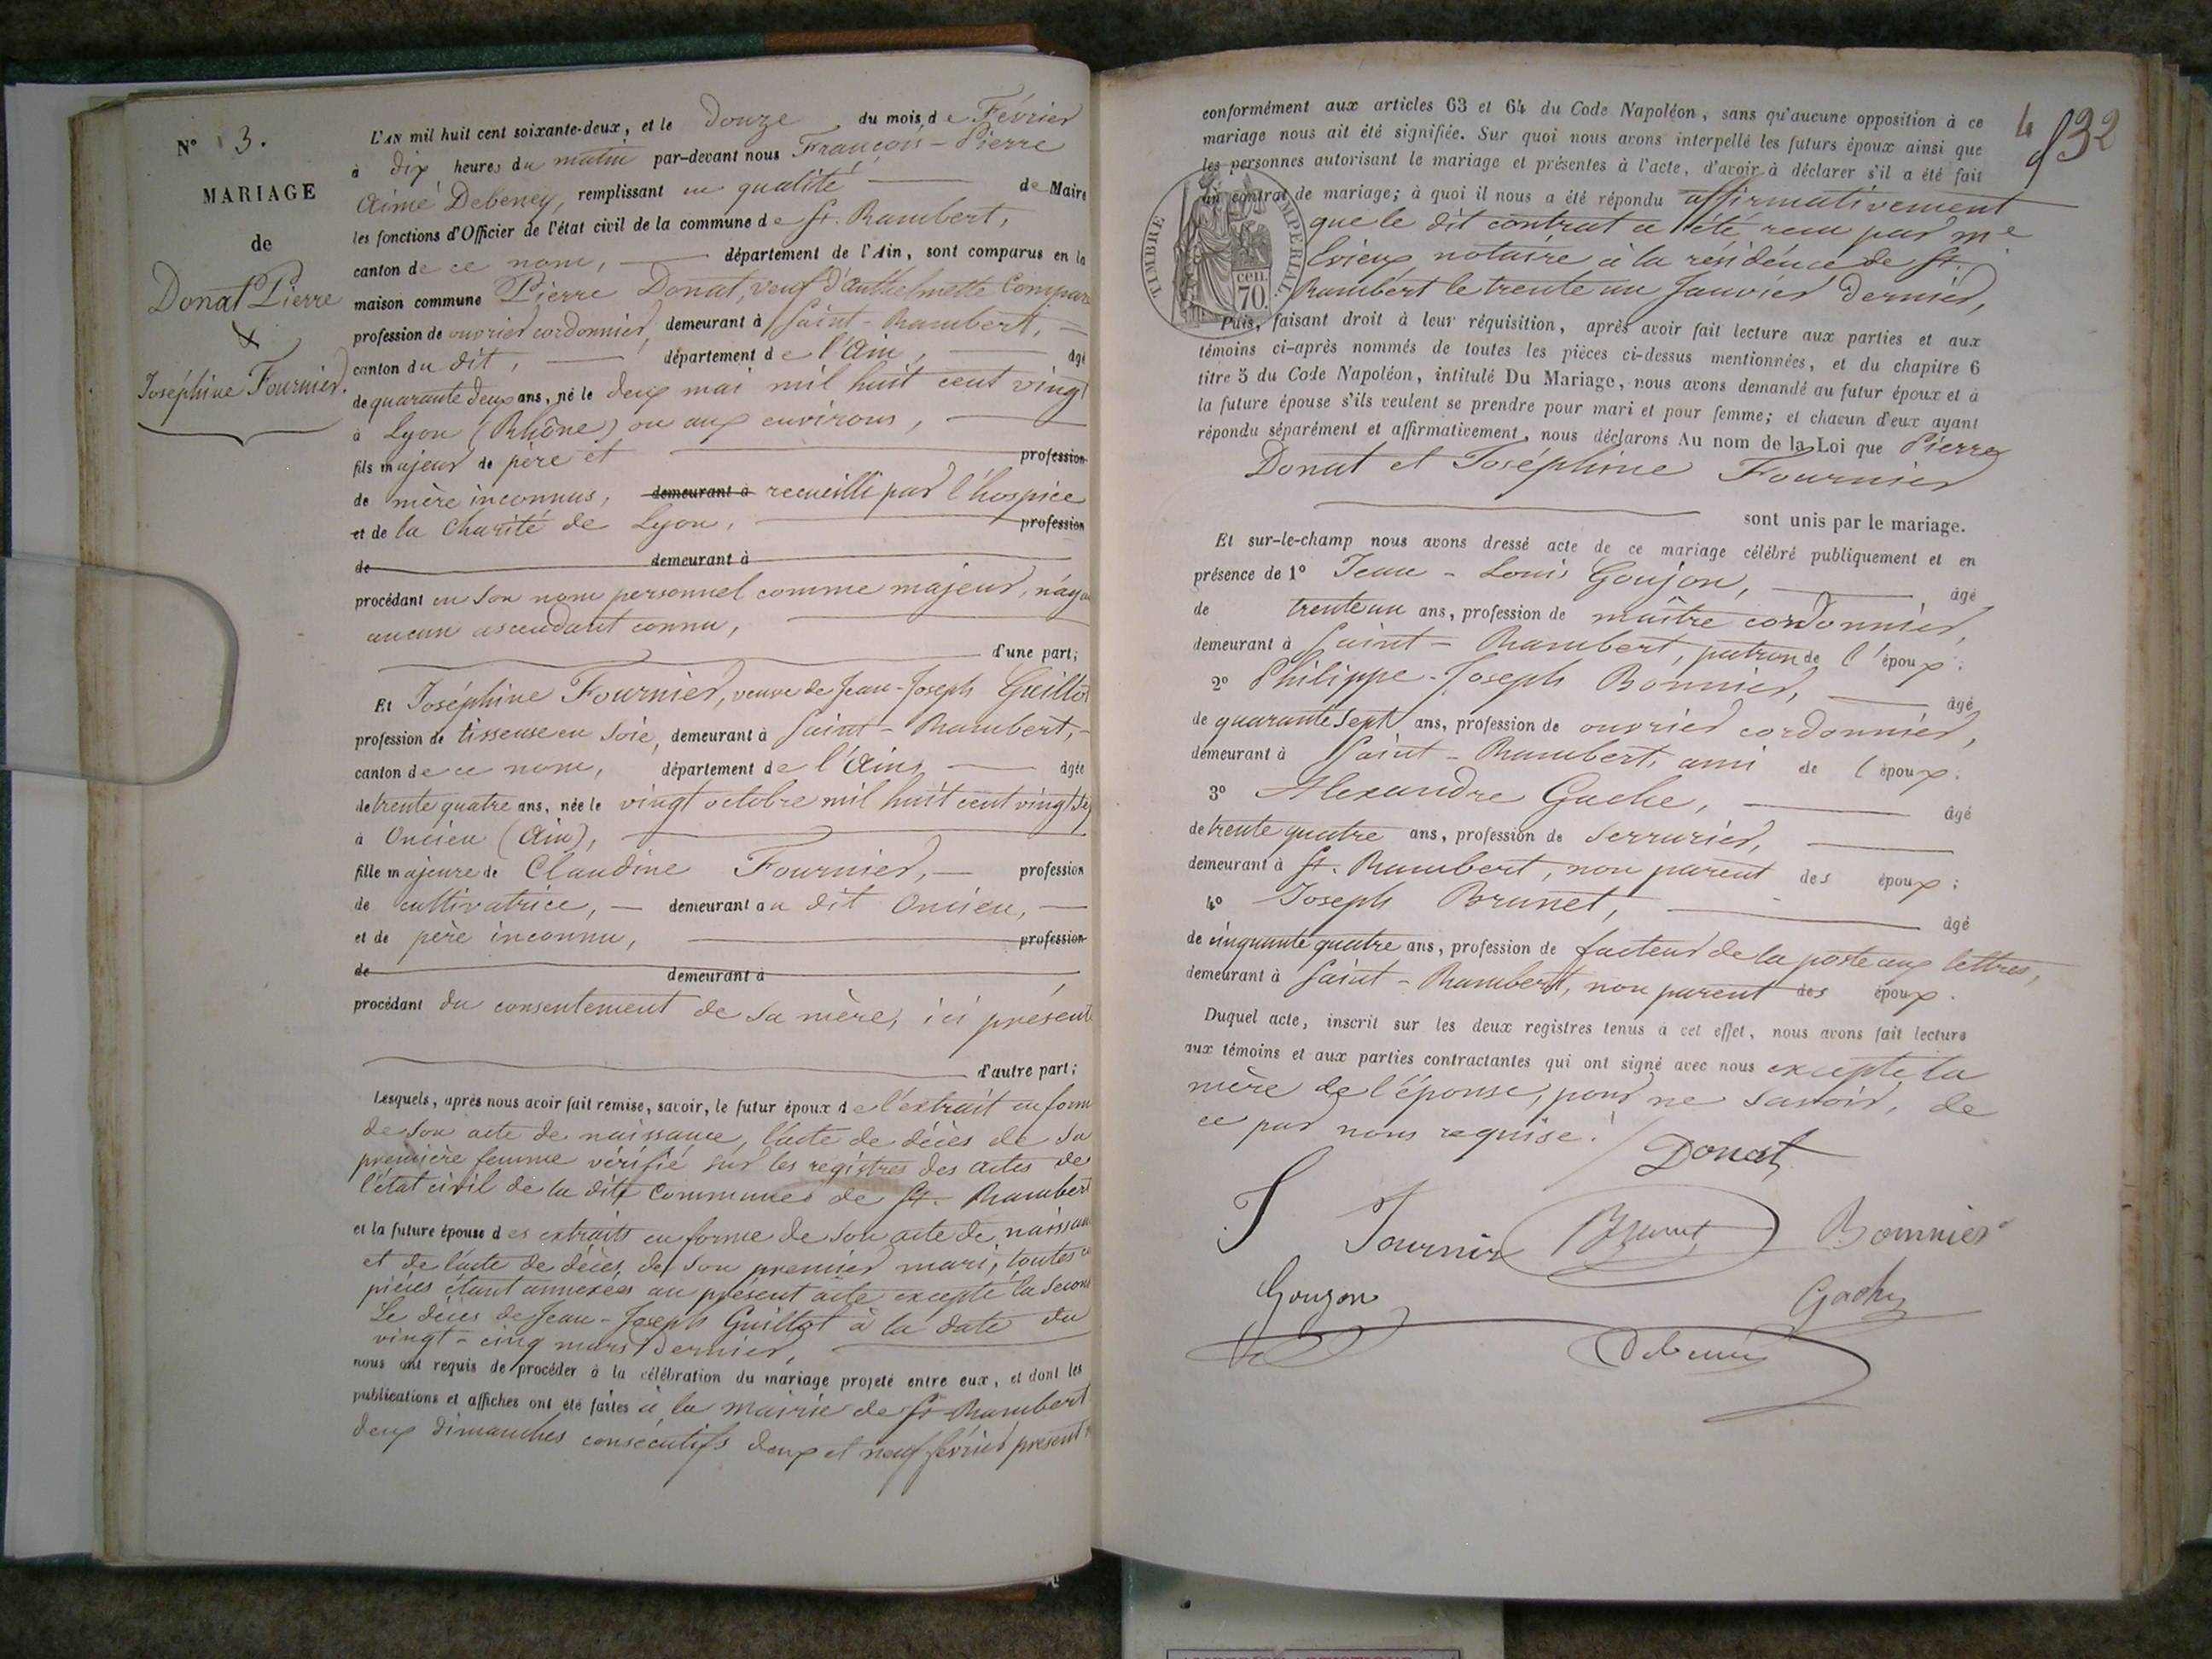 N° 3.
MARIAGE
de
Donat Pierre
&
Joséphine Fournier.
L'AN mil huit cent soixante-deux, et le Douze du mois de Février
à dix heures du matin par-devant nous François-Pierre
Aimé Debeney, remplissant en qualité de Maire
les fonctions d'Officier de l'état civil de la commune de St. Rambert,
canton de ce nom, département de l'Ain, sont comparus en la
maison commune Pierre Donat, veuf d'Anthelmette Compar
profession de ouvrier cordonnier, demeurant à Saint-Rambert,
canton du dit, département de l'Ain, âgé
de quarante deux ans, né le deux mai mil huit cent vingt
à Lyon (Rhône) ou aux environs,
fils majeur de père et profession
de mère inconnus, demeurant à recueilli par l'hospice
et de la Charité de Lyon, profession
de demeurant à
procédant en son nom personnel comme majeur, n'aya
aucun ascendant connu,
d'une part;
Et Joséphine Fournier, veuve de Jean-Joseph Guillot
profession de tisseuse en soie, demeurant à Saint-Rambert,
canton de ce nom, département de l'Ain, âgée
de trente quatre ans, née le vingt octobre mil huit cent vingt sep
à Oncieu (Ain),
fille majeure de Claudine Fournier, profession
de cultivatrice, demeurant au dit Oncieu,
et de père inconnu, profession
de demeurant à
procédant du consentement de sa mère, ici présente
d'autre part;
Lesquels, après nous avoir fait remise, savoir, le futur époux de l'extrait en form
de son acte de naissance, l'acte de décès de sa
première femme vérifié sur les registres des actes de
l'état civil de la dite Commune de St. Rambert
et la future épouse des extraits en forme de son acte de naissan
et de l'acte de décès de son premier mari, toutes ce
pièces étant annexées au présent acte excepté la second
Le décès de Jean-Joseph Guillot à la date du
vingt-cinq mars dernier,
nous ont requis de procéder à la célébration du mariage projeté entre eux, et dont les
publications et affiches ont été faites à la mairie de St Rambert
deux dimanches consécutifs deux et neuf février présent
4
832
conformément aux articles 63 et 64 du Code Napoléon, sans qu'aucune opposition à ce
mariage nous ait été signifiée. Sur quoi nous avons interpellé les futurs époux ainsi que
les personnes autorisant le mariage et présentes à l'acte, d'avoir à déclarer s'il a été fait
un contrat de mariage; à quoi il nous a été répondu affirmativement
que le dit contrat a été reçu par Me
Evieux notaire à la résidence de St.
Rambert le trente un Janvier dernier,
TIMBRE IMPERIAL
70 cen.
Puis, faisant droit à leur réquisition, après avoir fait lecture aux parties et aux
témoins ci-après nommés de toutes les pièces ci-dessus mentionnées, et du chapitre 6
titre 5 du Code Napoléon, intitulé Du Mariage, nous avons demandé au futur époux et à
la future épouse s'ils veulent se prendre pour mari et pour femme; et chacun d'eux ayant
répondu séparément et affirmativement, nous déclarons Au nom de la Loi que Pierre
Donat et Joséphine Fournier
sont unis par le mariage.
Et sur-le-champ nous avons dressé acte de ce mariage célébré publiquement et en
présence de 1° Jean-Louis Goujon, âgé
de trente un ans, profession de maître cordonnier,
demeurant à Saint-Rambert, patron de l'époux.
2° Philippe-Joseph Bonnier, âgé
de quarante sept ans, profession de ouvrier cordonnier,
demeurant à Saint-Rambert, ami de l'époux.
3° Alexandre Gache, âgé
de trente quatre ans, profession de serrurier,
demeurant à St. Rambert, non parent des époux;
4° Joseph Brunet, âgé
de cinquante quatre ans, profession de facteur de la poste aux lettres,
demeurant à Saint-Rambert, non parent des époux.
Duquel acte, inscrit sur les deux registres tenus à cet effet, nous avons fait lecture
aux témoins et aux parties contractantes qui ont signé avec nous excepté la
mère de l'épouse, pour ne savoir, de
ce par nous requise.
Donat
J Fournir Brunet Bonnier
Goujon Gache
Debeney